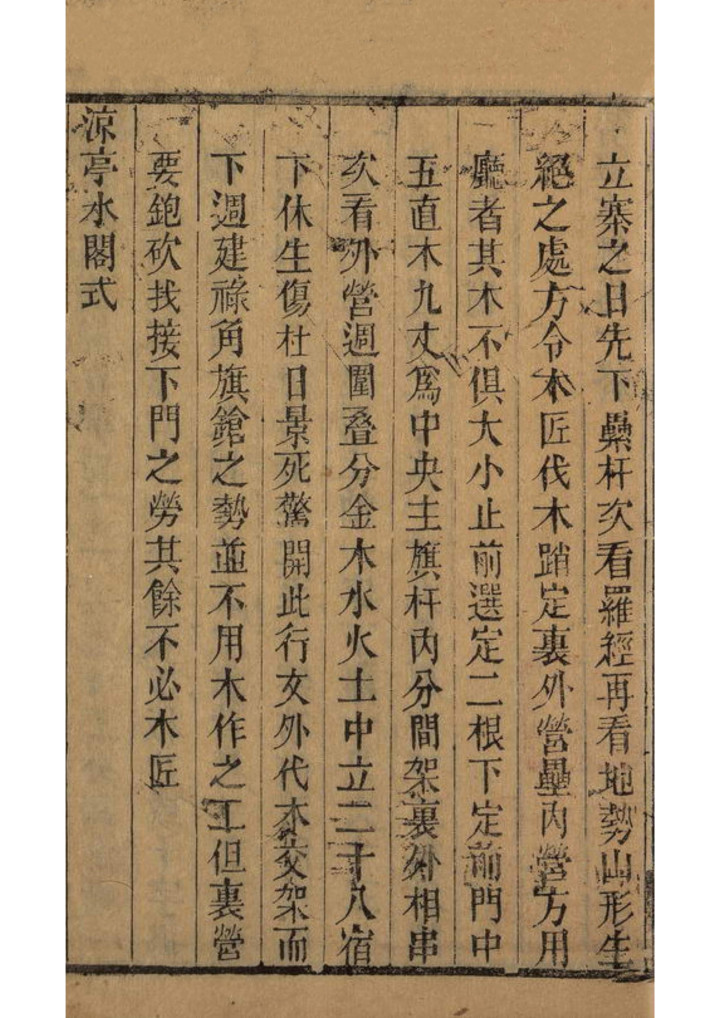 立寨之日先下纍杆次看羅經再看地勢山形生
絕之處方令木匠伐木踏定裏外營壘內營方用
廳者其木不俱大小止前選定二根下定前門中
五直木九丈爲中央主旗杆內分間架裏外相串
次看外營週圍叠分金木水火土中立二十八宿
下休生傷杜日景死驚開此行文外代木交架而
下週建祿角旗鎗之勢並不用木作之工但裏營
要鉋砍找接下門之勞其餘不必木匠
凉亭水閣式